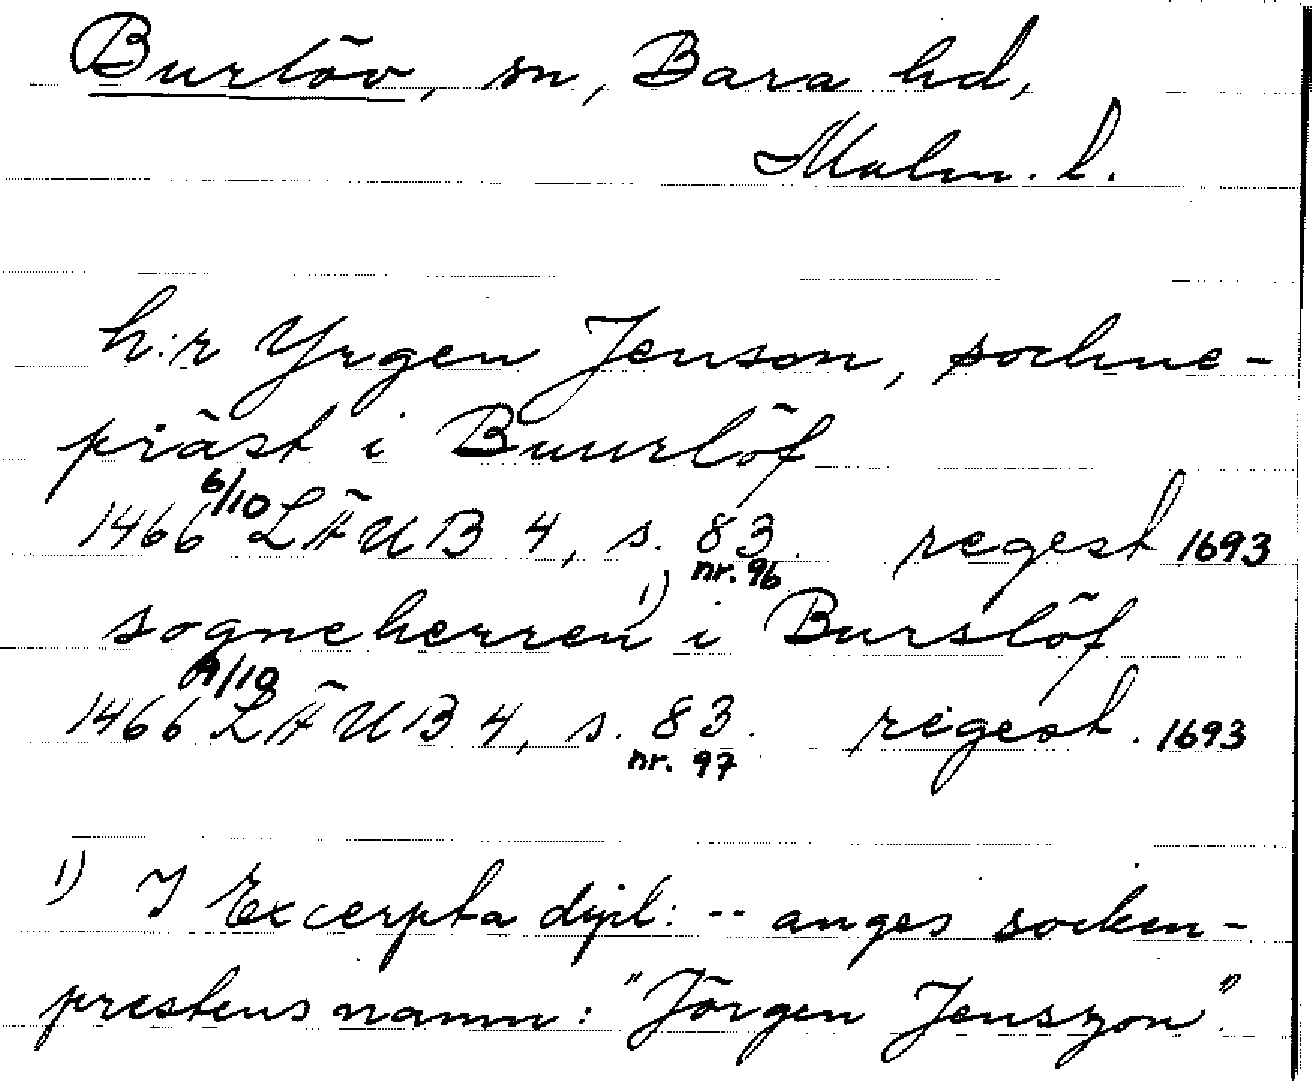 Burlöv, sn, Bara hd,
Malm. l.
h:r Yrgen Jenson, sochne-
präst i Buurlöf
1466 6/10 LÄUB 4, s. 83. regest 1693
nr. 96
sogneherren 1) i Burslöf
1466 /10 LÄUB 4, s. 83. regest. 1693
nr. 97
1) I Excerpta dipl: -- anges socken-
prestens namn: "Jörgen Jenszon".